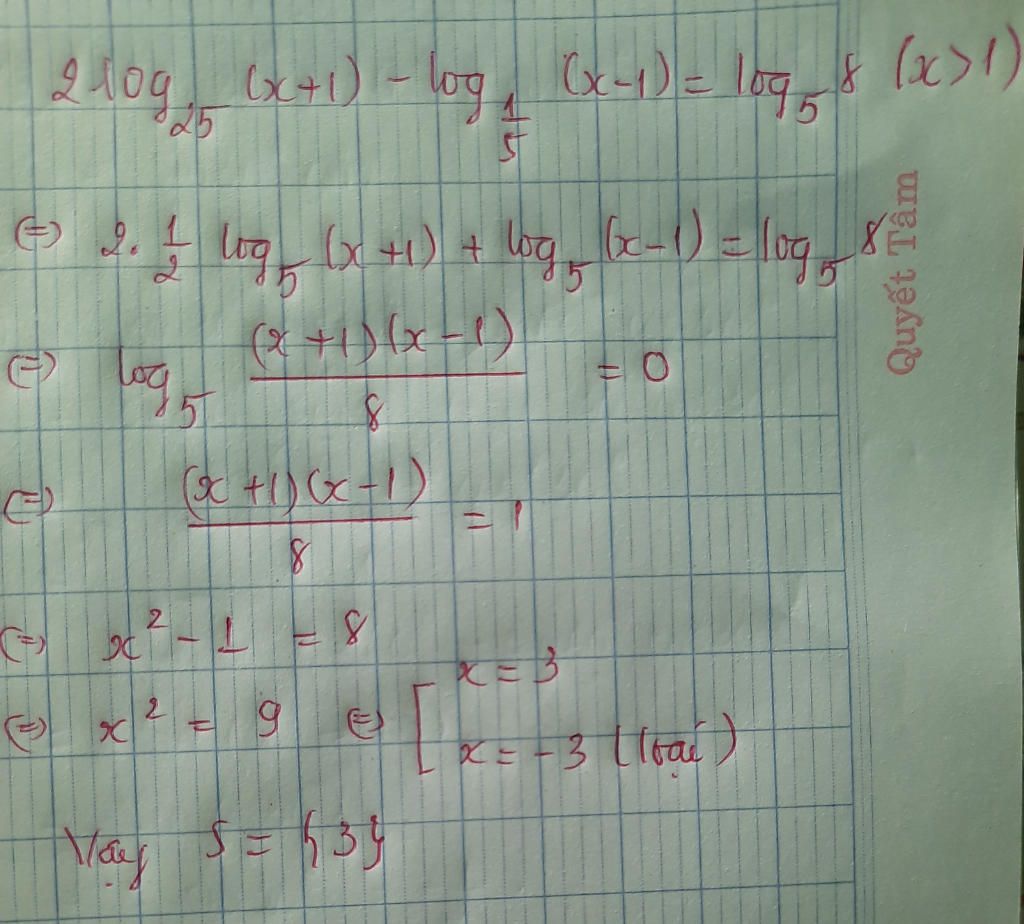 2log₂₅ (x+1) - log_{1/5} (x-1) = log₅ 8 (x>1)
(=) 2. 1/2 log₅ (x+1) + log₅ (x-1) = log₅ 8
(=) log₅ (x+1)(x-1)/8 = 0
(=) (x+1)(x-1)/8 = 1
(=) x² - 1 = 8
(=) x² = 9 (=) [ x = 3
x = -3 (loại)
Vậy S = {3}
Quyết Tâm